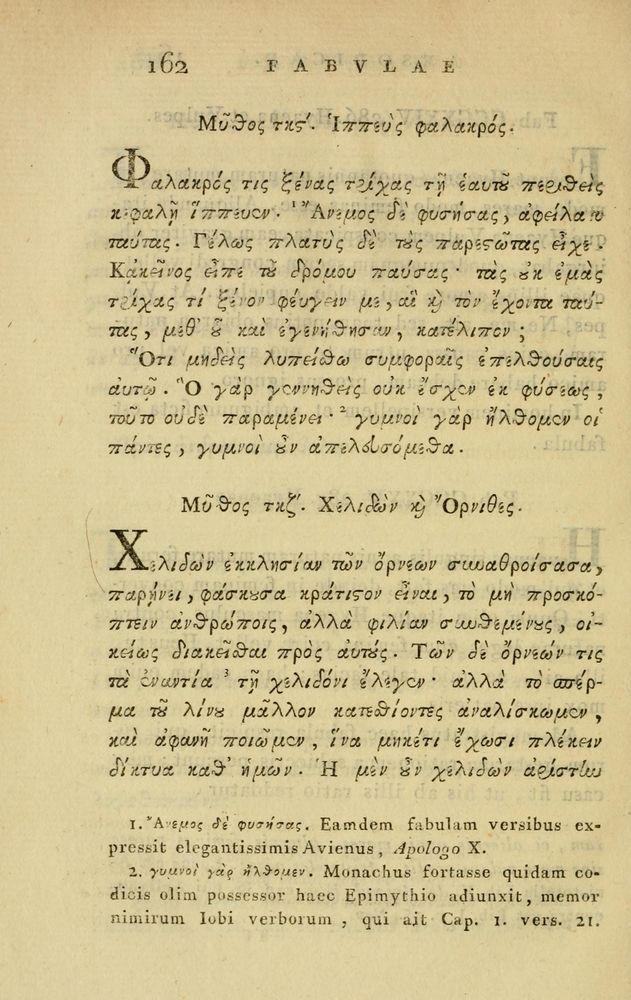 162 FABVLAE
Μῦθος τκϛ΄. Ἱππεὺς φαλακρός.
Φαλακρός τις ξένας τρίχας τῇ ἑαυτοῦ περιθεὶς
κεφαλῇ ἵππευεν. ¹ Ἄνεμος δὲ φυσήσας, ἀφείλατο
ταύτας. Γέλως πλατὺς δὲ τοὺς παρεστῶτας εἶχε.
Κἀκεῖνος εἶπε τοῦ δρόμου παύσας· τὰς οὐκ ἐμὰς
τρίχας τί ξένον φεύγειν με, αἳ καὶ τὸν ἔχοντα ταύ-
τας, μεθ᾽ οὗ καὶ ἐγενήθησαν, κατέλιπον;
Ὅτι μηδεὶς λυπείσθω συμφοραῖς ἐπελθούσαις
αυτῷ. Ὃ γὰρ γεννηθεὶς οὐκ ἔσχεν ἐκ φύσεως,
τοῦτο οὐδὲ παραμένει· ² γυμνοὶ γὰρ ἤλθομεν οἱ
πάντες, γυμνοὶ οὖν ἀπελευσόμεθα.
Μῦθος τκζ΄. Χελιδὼν καὶ Ὄρνιθες.
Χελιδὼν ἐκκλησίαν τῶν ὀρνέων συναθροίσασα,
παρῄνει, φάσκουσα κράτιστον εἶναι, τὸ μὴ προσκό-
πτειν ἀνθρώποις, ἀλλὰ φιλίαν συνθεμένους, οἰ-
κείως διακεῖσθαι πρὸς αὐτούς. Τῶν δὲ ὀρνεών τις
τὰ ἐναντία ³ τῇ χελιδόνι ἔλεγεν· ἀλλὰ τὸ σπέρ-
μα τοῦ λίνου μᾶλλον κατεσθίοντες ἀναλίσκωμεν,
καὶ ἀφανῆ ποιῶμεν, ἵνα μηκέτι ἔχωσι πλέκειν
δίκτυα καθ᾽ ἡμῶν. Ἡ μὲν οὖν χελιδὼν ἀρίστην
1. Ἄνεμος δὲ φυσήσας. Eamdem fabulam versibus ex-
pressit elegantissimis Avienus, Apologo X.
2. γυμνοὶ γὰρ ἤλθομεν. Monachus fortasse quidam co-
dicis olim possessor haec Epimythio adiunxit, memor
nimirum Iobi verborum, qui ait Cap. 1. vers. 21.